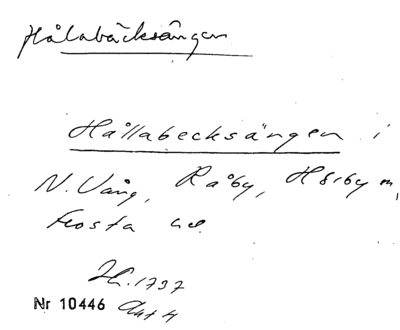 Hålabäcksängen
Hållabecksängen i
N. Vång, Raåby, Hörby m,
Frosta hd.
1737
Nr 10446 Akt 4